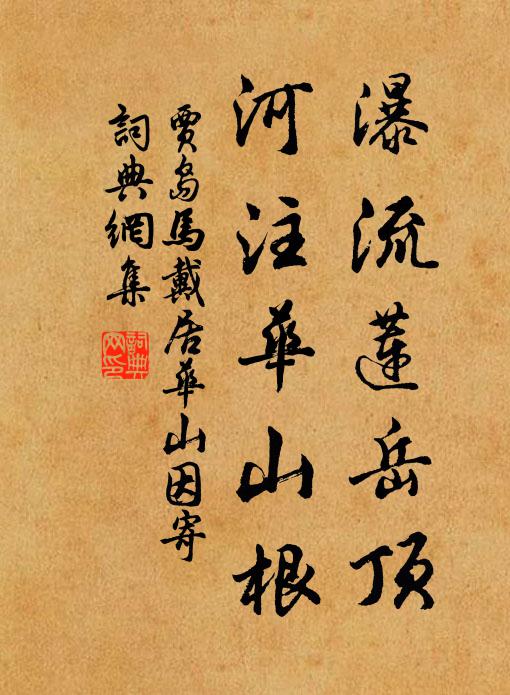 瀑流蓮岳頂
河注華山根
賈島馬戴居華山因寄
詞典網集
詞典
网印